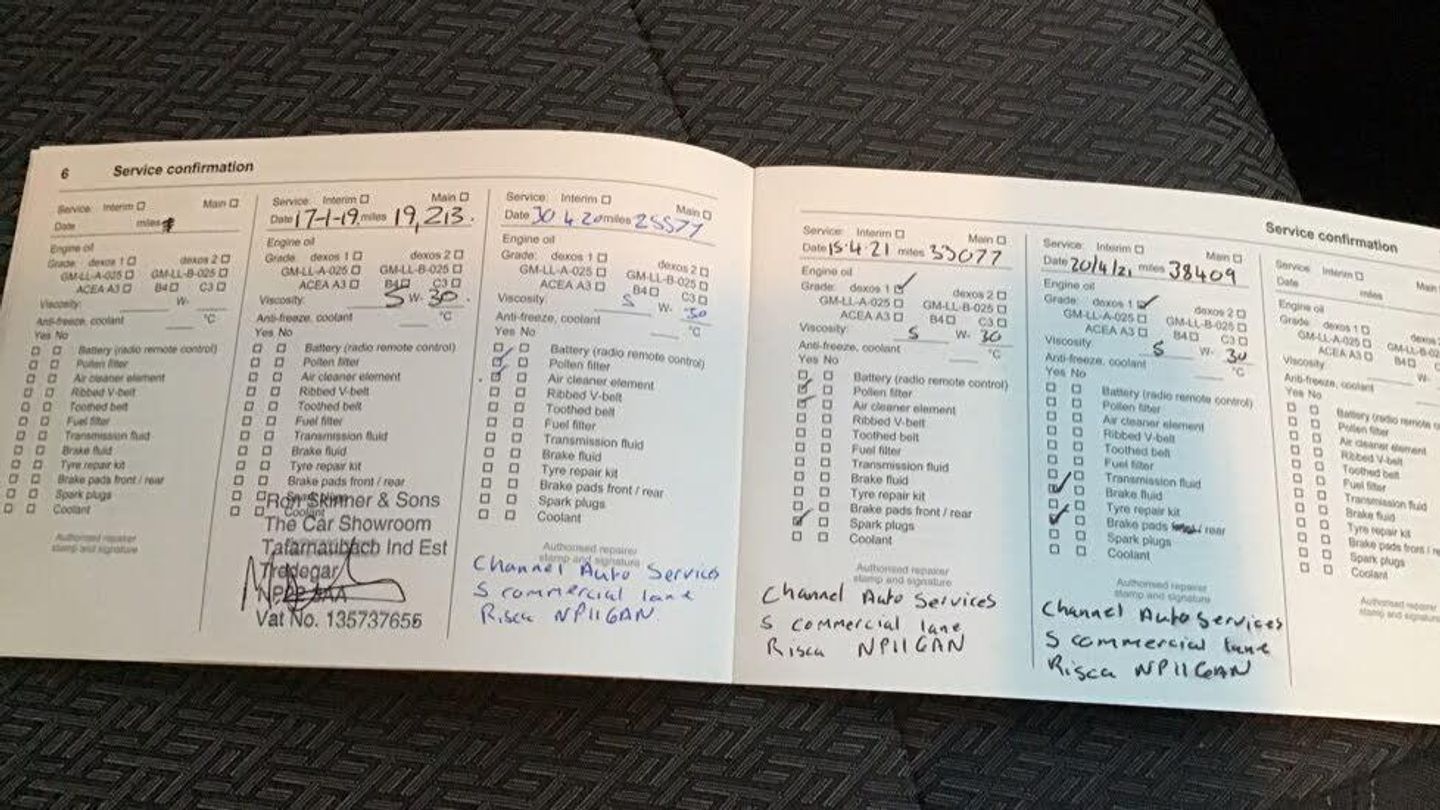 6 Service confirmation
Service: Interim Main
Date miles
Engine oil
Grade: dexos 1 dexos 2
GM-LL-A-025 GM-LL-B-025
ACEA A3 B4 C3
Viscosity: W-
Anti-freeze, coolant °C
Yes No
Battery (radio remote control)
Pollen filter
Air cleaner element
Ribbed V-belt
Toothed belt
Fuel filter
Transmission fluid
Brake fluid
Tyre repair kit
Brake pads front / rear
Spark plugs
Coolant
Authorised repairer
stamp and signature
Service: Interim Main
Date 17-1-19. miles 19,213.
Engine oil
Grade: dexos 1 dexos 2
GM-LL-A-025 GM-LL-B-025
ACEA A3 B4 C3
Viscosity: 5 W- 30.
Anti-freeze, coolant °C
Yes No
Battery (radio remote control)
Pollen filter
Air cleaner element
Ribbed V-belt
Toothed belt
Fuel filter
Transmission fluid
Brake fluid
Tyre repair kit
Brake pads front / rear
Spark plugs
Coolant
Ron Skinner & Sons
The Car Showroom
Tafarnaubach Ind Est
Tredegar
NP22 3AA
Vat No. 135737656
Service: Interim Main
Date 30 4 20 miles 25577
Engine oil
Grade: dexos 1 dexos 2
GM-LL-A-025 GM-LL-B-025
ACEA A3 B4 C3
Viscosity: 5 W- 30
Anti-freeze, coolant °C
Yes No
Battery (radio remote control)
Pollen filter
Air cleaner element
Ribbed V-belt
Toothed belt
Fuel filter
Transmission fluid
Brake fluid
Tyre repair kit
Brake pads front / rear
Spark plugs
Coolant
Authorised repairer
stamp and signature
Channel Auto Services
5 commercial lane
Risca NP11 6AN
Service confirmation
Service: Interim Main
Date 15.4.21 miles 33077
Engine oil
Grade: dexos 1 dexos 2
GM-LL-A-025 GM-LL-B-025
ACEA A3 B4 C3
Viscosity: 5 W- 30
Anti-freeze, coolant °C
Yes No
Battery (radio remote control)
Pollen filter
Air cleaner element
Ribbed V-belt
Toothed belt
Fuel filter
Transmission fluid
Brake fluid
Tyre repair kit
Brake pads front / rear
Spark plugs
Coolant
Authorised repairer
stamp and signature
Channel Auto Services
5 commercial lane
Risca NP11 6AN
Service: Interim Main
Date 20/4/21 miles 38409
Engine oil
Grade: dexos 1 dexos 2
GM-LL-A-025 GM-LL-B-025
ACEA A3 B4 C3
Viscosity: 5 W- 30
Anti-freeze, coolant °C
Yes No
Battery (radio remote control)
Pollen filter
Air cleaner element
Ribbed V-belt
Toothed belt
Fuel filter
Transmission fluid
Brake fluid
Tyre repair kit
Brake pads rear
Spark plugs
Coolant
Authorised repairer
stamp and signature
Channel Auto Services
5 commercial lane
Risca NP11 6AN
Service: Interim Main
Date miles
Engine oil
Grade: dexos 1 dexos
GM-LL-A-025 GM-LL-B-0
ACEA A3 B4 C
Viscosity: W-
Anti-freeze, coolant
Yes No
Battery (radio remote
Pollen filter
Air cleaner element
Ribbed V-belt
Toothed belt
Fuel filter
Transmission fluid
Brake fluid
Tyre repair kit
Brake pads front / re
Spark plugs
Coolant
Authorised repairer
stamp and signature